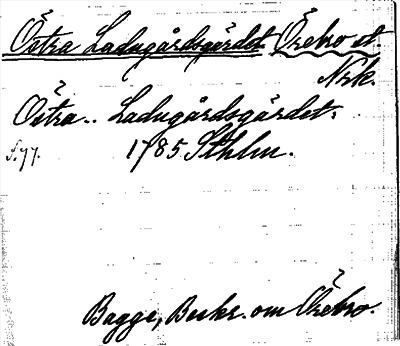 Östra Ladugårdsgärdet. Örebro st.
Nrk.
Östra.. Ladugårdsgärdet.
s.77. 1785 Sthlm.
Bagge, Beskr. om Örebro.